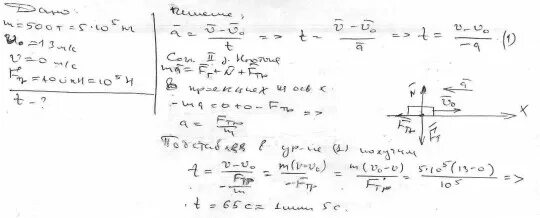 Дано:
m = 500т = 5·10⁵ М
v₀ = 13 м/с
v = 0 м/с
Fтр = 100 кН = 10⁵ Н
t - ?
Решение,
a̅ = (v̅ - v̅₀)/t => t = (v̅ - v̅₀)/a̅ => t = (v - v₀)/-a (1)
II з. Ньютона
ma̅ = F̅т + N̅ + F̅тр
В проекциях на ось x
-ma = 0+0- Fтр =>
a = Fтр/m
N̅ a̅ v̅₀
F̅тр F̅т X
Подставляя в ур-ие (1) получим
t = (v - v₀)/(-Fтр/m) = m(v - v₀)/-Fтр = m(v₀ - v)/Fтр = 5·10⁵(13-0)/10⁵ =>
t = 65с = 1мин 5с.